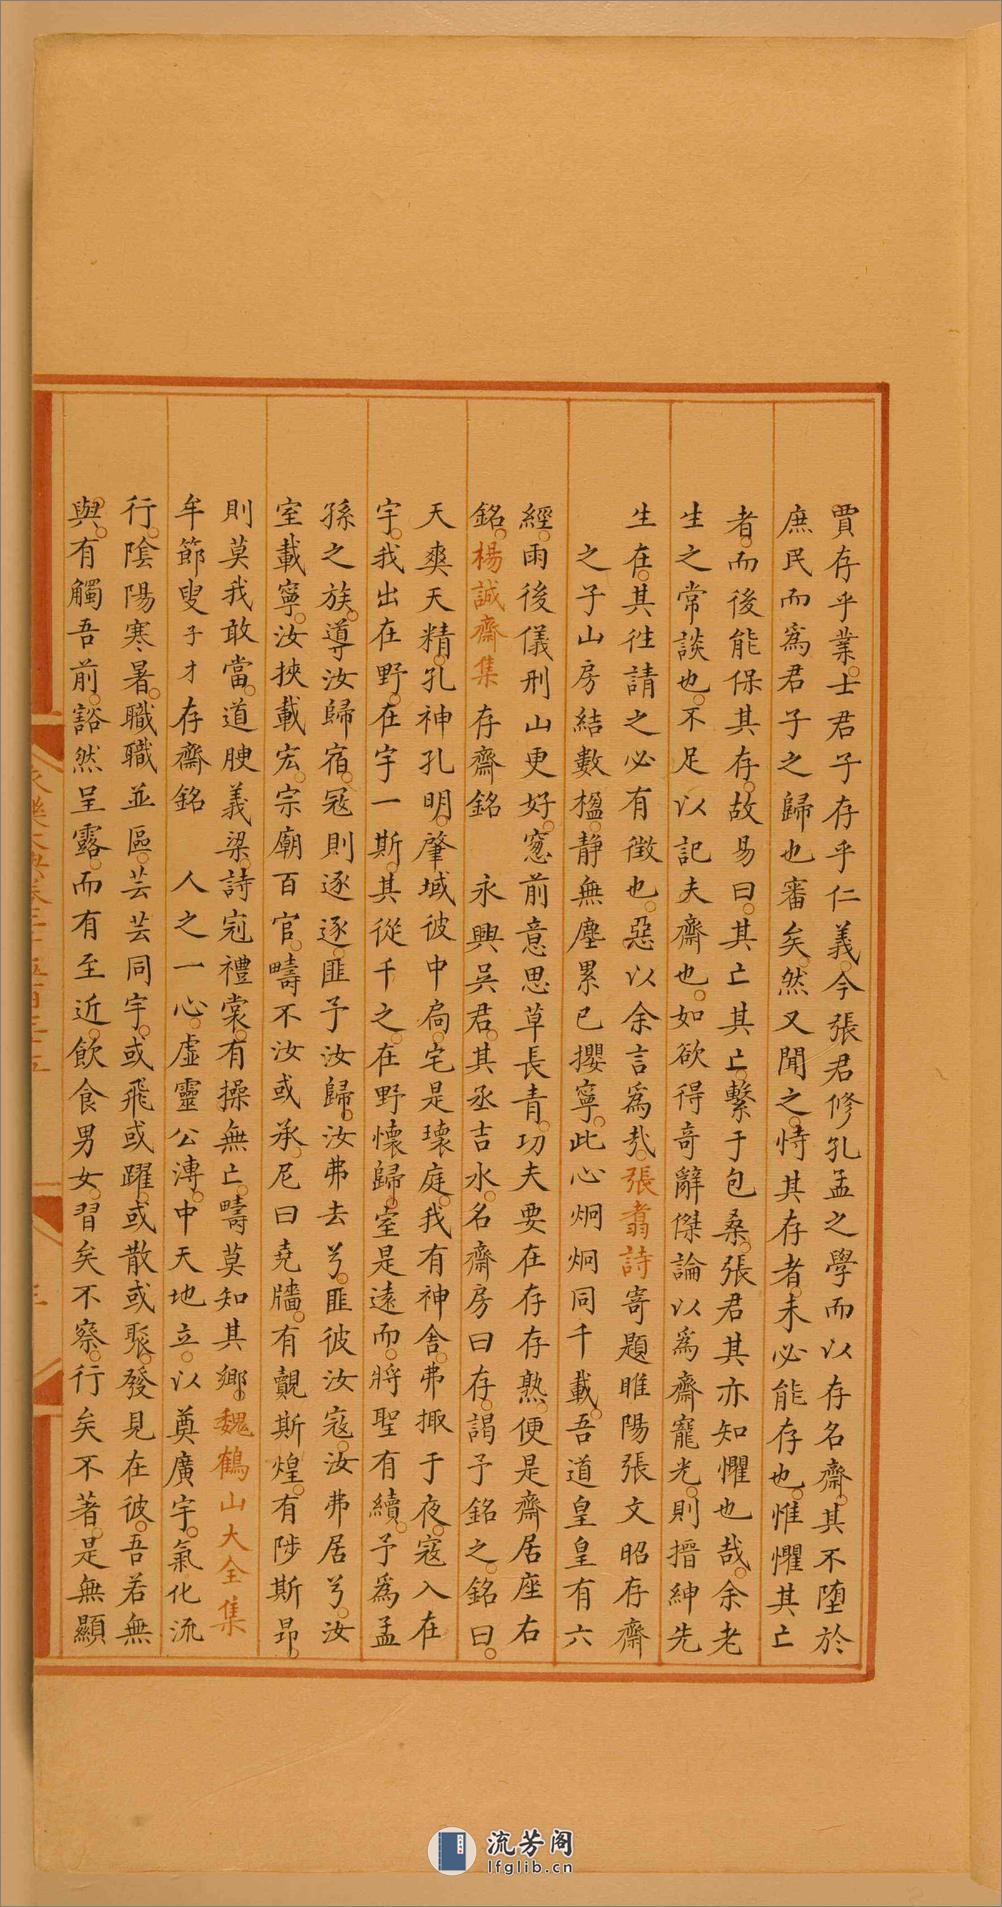 賈存乎業。士君子存乎仁義。今張君修孔孟之學而以存名齋。其不墮於
庶民而爲君子之歸也審矣。然又聞之。恃其存者。未必能存也。惟懼其亡
者。而後能保其存。故易曰。其亡其亡。繫于包桑。張君其亦知懼也哉。余老
生之常談也。不足以記夫齋也。如欲得奇辭傑論以爲齋寵光。則搢紳先
生在。其徃請之必有徵也。惡以余言爲㢤。張翥詩寄題睢陽張文昭存齋
之子山房結數楹。静無塵累已攖寧。此心炯炯同千載。吾道皇皇有六
經。雨後儀刑山更好。窓前意思草長青。功夫要在存存熟。便是齋居座右
銘。楊誠齋集存齋銘 永興吳君。其丞吉水。名齋房曰存。謁予銘之。銘曰。
天奭天精。孔神孔明。肇域彼中。扃宅是瓌庭。我有神舍。弗掫于夜。寇入在
宇。我出在野。在宇一斯。其從千之。在野懷歸。室是遠而。將聖有續。予爲孟
孫之族。導汝歸宿。寇則逐逐。匪予汝歸。汝弗去兮。匪彼汝寇。汝弗居兮。汝
室載寧。汝挾載宏。宗廟百官。疇不汝或承。尼曰堯牆。有覿斯煌。有陟斯昻。
則莫我敢當。道腴義粱。詩冠禮裳。有操無亡。疇莫知其鄉。魏鶴山大全集
牟節叟子才存齋銘 人之一心。虛靈公溥。中天地立。以奠廣宇。氣化流
行。隂陽寒暑。職職並區。芸芸同宇。或飛或躍。或散或聚。發見在彼。吾若無
與。有觸吾前。豁然呈露。而有至近。飲食男女。習矣不察。行矣不著。是無顯
永樂大典卷二千五百三十五
流芳阁
lfglib.cn